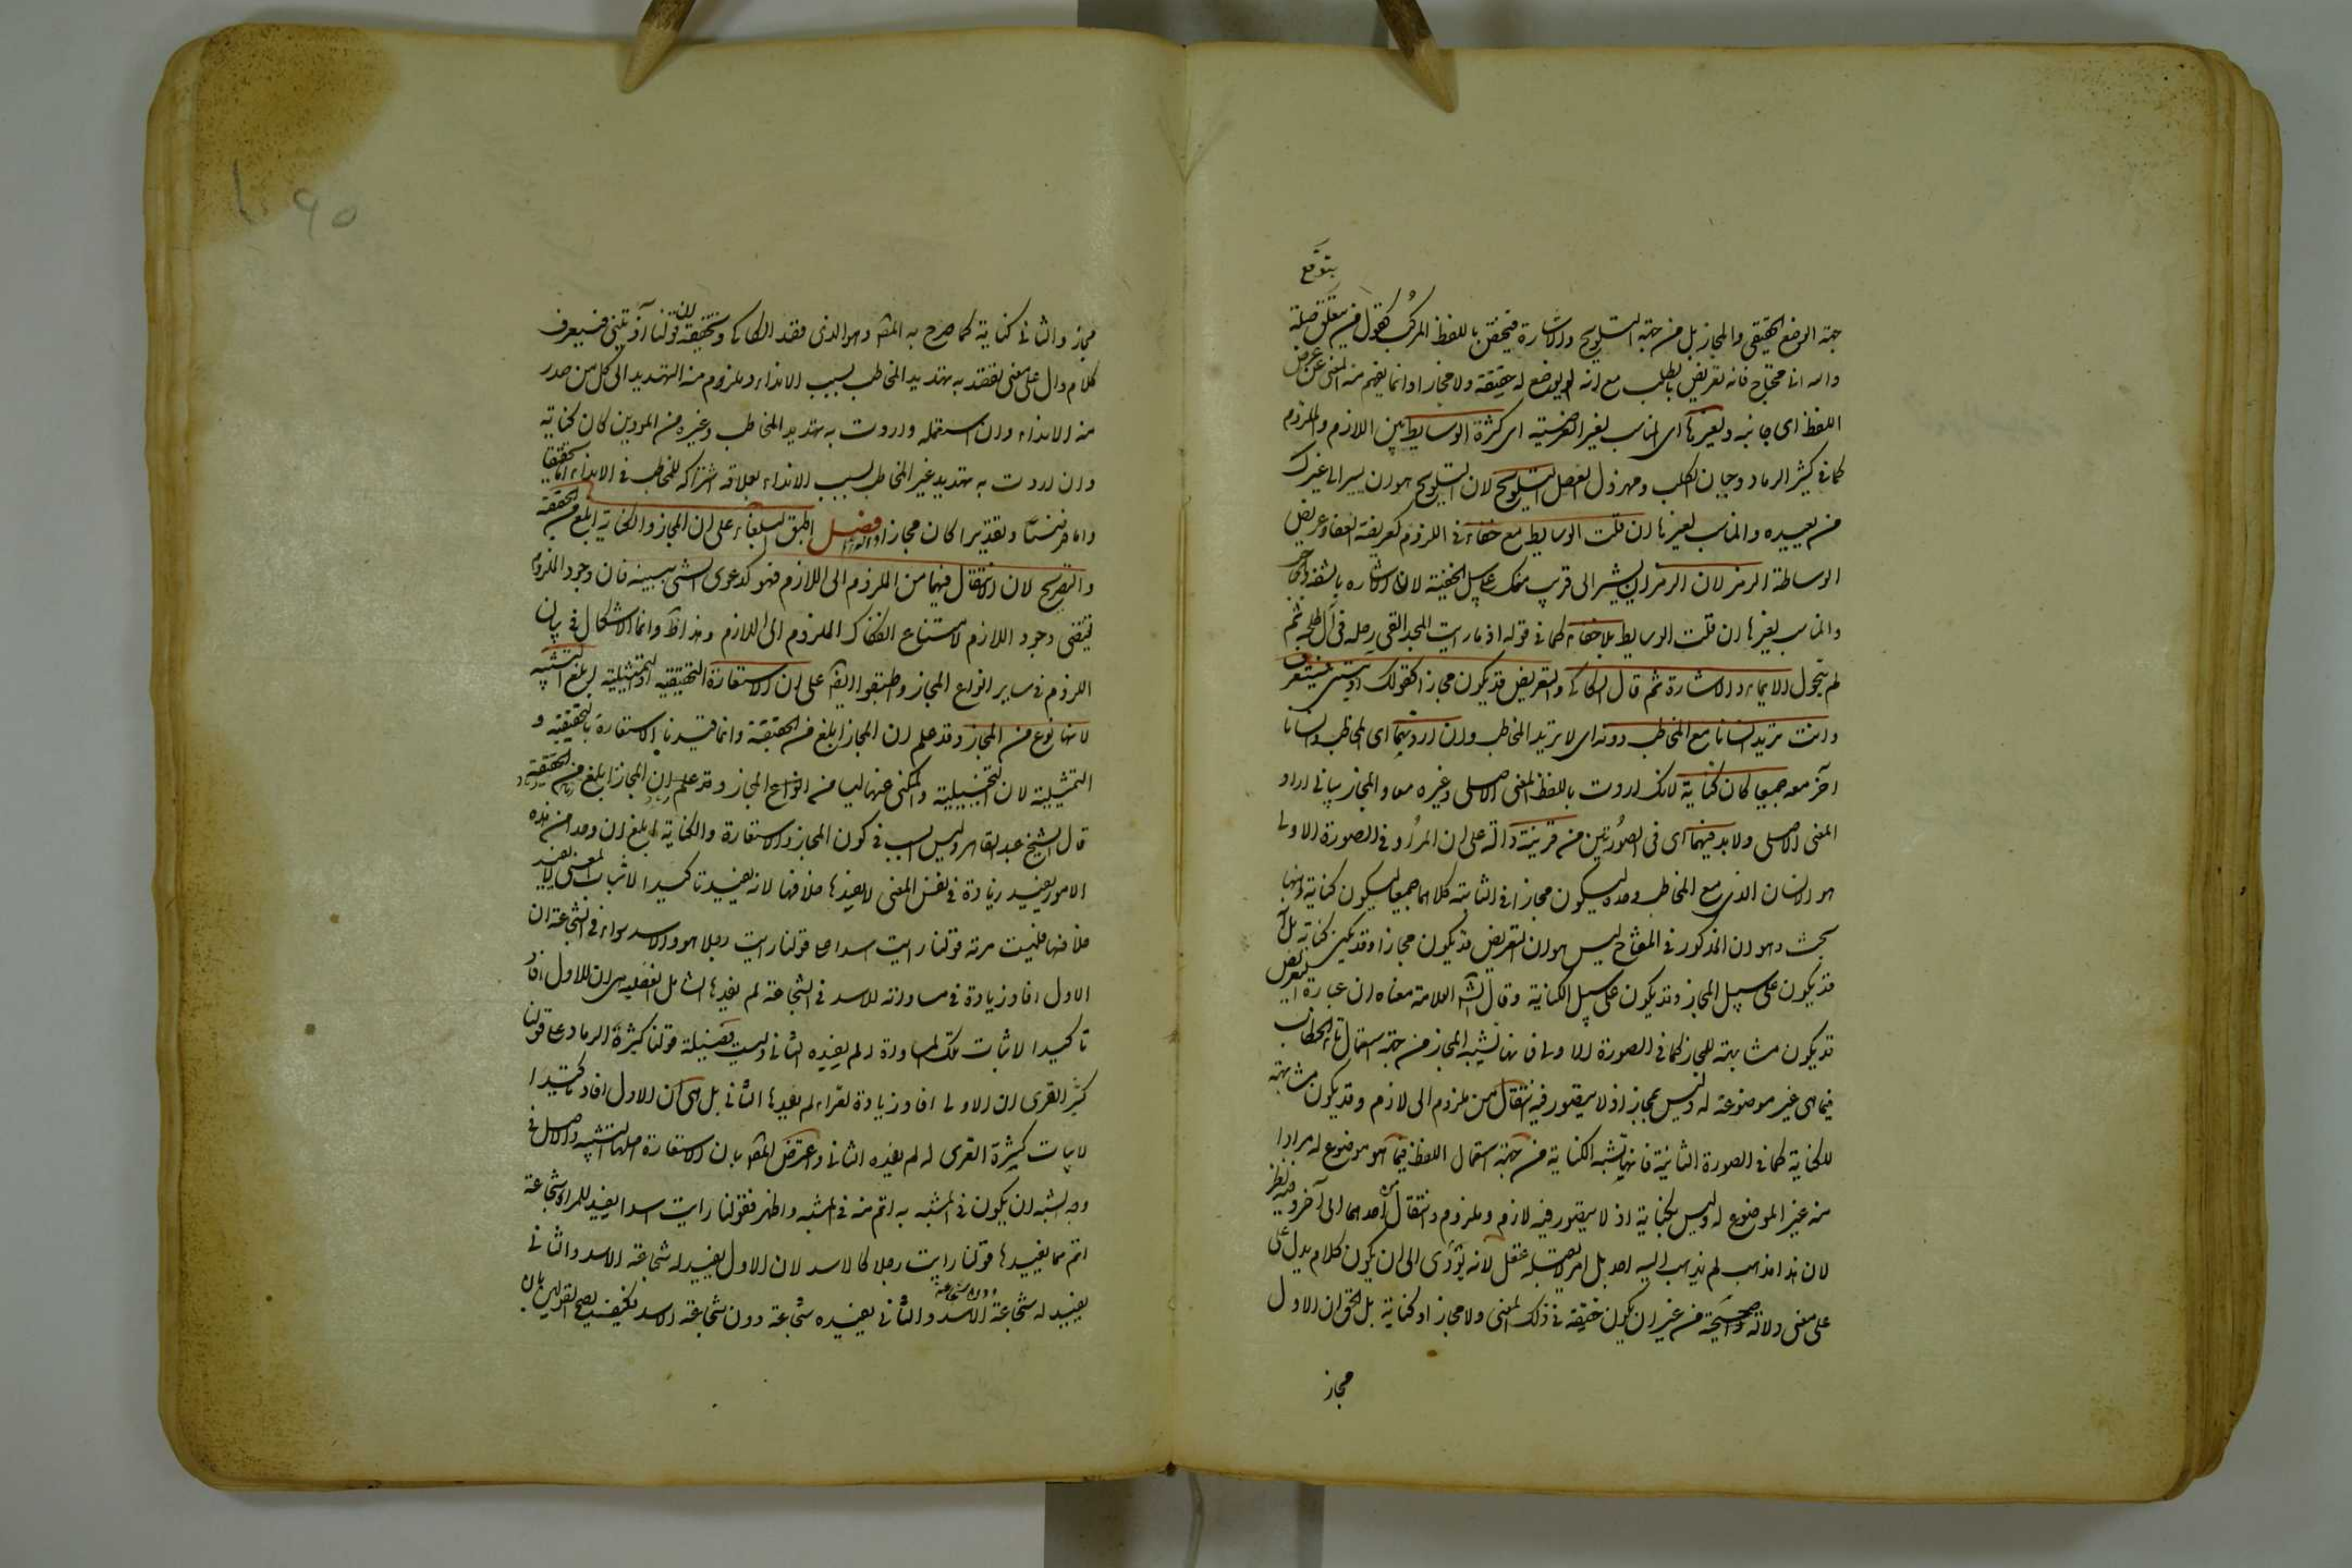 يتوقع
جهة الوضع الحقيقى والمجاز بل من جهة التلويح والاشارة فيختص باللفظ المركب كقول من يتوقع صلة
والله انى محتاج فانه تعريض بالطلب مع انه لم يوضع له حقيقة ولا مجازا وانما يفهم منه المعنى من عرض
اللفظ اى جانبه ولغيرها اى المناسب لغير العرضية ان كثرة الوسايط بين اللازم والملزوم
كما فى كثير الرماد وجبان الكلب ومهزول الفصيل التلويح لان التلويح هو ان تشير الى غيرك
من بعيد والمناسب لغيرها ان قلت الوسايط مع خفاء فى اللزوم كعريض القفا وعريض
الوسادة الرمز لان الرمز ان تشير الى قريب منك على سبيل الخفية لان الاشارة بالشفة والحاجب
والمناسب لغيرها ان قلت الوسايط بلا خفاء كما فى قوله او ما رايت المجد القى رحله فى آل طلحة ثم
لم يتحول الايماء والاشارة ثم قال السكاكى والتعريض قد يكون مجازا كقولك آذيتنى فستعرف
وانت تريد انسانا مع المخاطب دونه اى لا تريد المخاطب وان اردتهما اى المخاطب وانسانا
آخر معه جميعا كان كناية لانك اردت باللفظ المعنى الاصلى وغيره معا والمجاز ينافى ارادة
المعنى الاصلى ولابد فيهما اى فى الصورتين من قرينة دالة على ان المراد فى الصورة الاولى
هو الانسان الذى مع المخاطب وحده ليكون مجازا وفى الثانية كلاهما جميعا ليكون كناية وههنا
بحث وهو ان المذكور فى المفتاح ليس هو ان التعريض قد يكون مجازا وقد يكون كناية بل انه
قد يكون على سبيل المجاز وقد يكون على سبيل الكناية وقال الش العلامة معناه ان عبارة التعريض
قد يكون مشابهة للمجاز كما فى الصورة الاولى فانها تشبه المجاز من جهة استعمال تاء الخطاب
فيما هى غير موضوعة له وليس بمجاز اذ لا يتصور فيه انتقال من ملزوم الى لازم وقد يكون مشابهة
للكناية كما فى الصورة الثانية فانها تشبه الكناية من جهة استعمال اللفظ فيما هو موضوع له مرادا
منه غير الموضوع له وليس بكناية اذ لا يتصور فيه لازم وملزوم وانتقال من احدهما الى آخر وفيه نظر
لان هذا مذهب لم يذهب اليه احد بل امر لا يقبله عقل لانه يؤدى الى ان يكون كلام يدل على
على معنى دلالة صحيحة من غير ان يكون حقيقة فى ذلك المعنى ولا مجازا او كناية بل الحق ان الاول
مجاز
90
مجاز والثانى كناية كما صرح به المص وهو الذى قصد السكاكى وتحقيقه ان قولنا آذيتنى فستعرف
كلام دال على معنى يقصد به تهديد المخاطب بسبب الايذاء ويلزم منه التهديد الى كل من صدر
منه الايذاء فان استعملته واردت به تهديد المخاطب وغيره من المؤذين كان كناية
وان اردت به تهديد غير المخاطب بسبب الايذاء بعلاقة اشتراكه للمخاطب فى الايذاء اما تحقيقا
واما فرضا وتقديرا كان مجازا فصل اطبق البلغاء على ان المجاز والكناية ابلغ من الحقيقة
والتصريح لان الانتقال فيهما من الملزوم الى اللازم فهو كدعوى الشئ ببينة فان وجود الملزوم
يقتضى وجود اللازم لامتناع انفكاك الملزوم الى اللازم وهذا ظ وانما الاشكال فى بيان
اللزوم فى ساير انواع المجاز واطبقوا ايضا على ان الاستعارة التحقيقية والتمثيلية ابلغ من التشبيه
لانها نوع من المجاز وقد علم ان المجاز ابلغ من الحقيقة وانما قيدنا الاستعارة بالتحقيقية و
التمثيلية لان التخييلية والمكنى عنها ليسا من انواع المجاز وقد علم ان المجاز ابلغ من الحقيقة
قال الشيخ عبد القاهر وليس السبب فى كون المجاز والاستعارة والكناية ابلغ ان واحدا من هذه
الامور يفيد زيادة فى نفس المعنى لا يفيدها خلافها لانه يفيد تاكيدا لاثبات المعنى لا يفيد
خلافها فليست مزية قولنا رايت اسدا على قولنا رايت رجلا هو والاسد سواء فى الشجاعة ان
الاول افاد زيادة فى مساواته للاسد فى الشجاعة لم يفدها الثانى بل الفضيلة هى ان الاول افاد
تاكيدا لاثبات تلك المساواة لم يفده الثانى وليست فضيلة قولنا كثير الرماد على قولنا
كثير القرى ان الاول افاد زيادة لقراه لم يفدها الثانى بل هى ان الاول افاد تاكيدا
لاثبات كثرة القرى له لم يفده الثانى واعترض المص بان الاستعارة اصلها التشبيه والاصل فى
وجه الشبه ان يكون فى المشبه به اتم منه فى المشبه واظهر فقولنا رايت اسدا يفيد للمراد شجاعة
اتم مما يفيدها قولنا رايت رجلا كالاسد لان الاول يفيد له شجاعة الاسد والثانى
يفيد له شجاعة دون شجاعة الاسد والثانى يفيده شجاعة دون شجاعة الاسد فكيف يصح القول بان